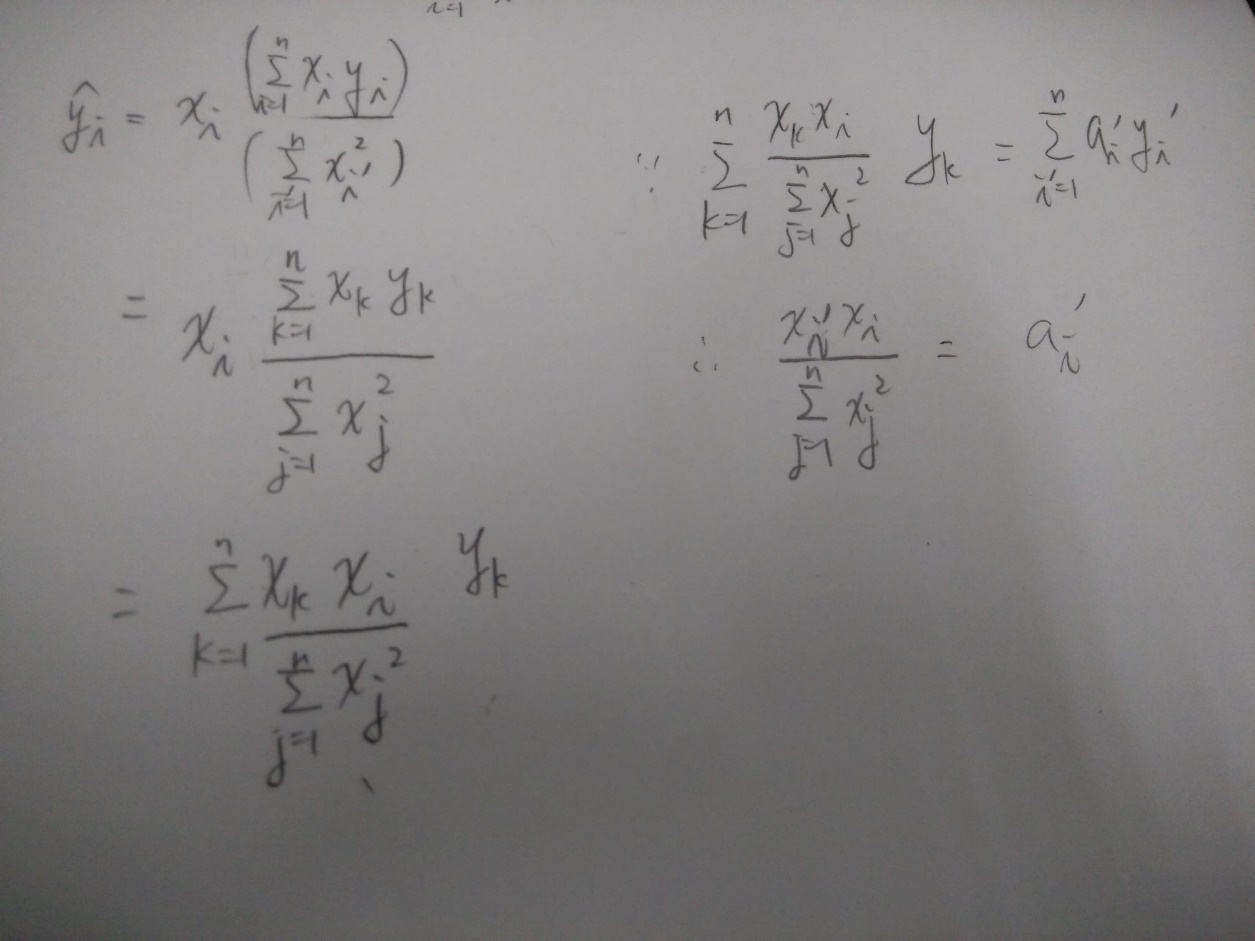 i=1
ŷᵢ = xᵢ (∑ᵢ₌₁ⁿ xᵢ yᵢ) / (∑ᵢ′₌₁ⁿ xᵢ′²)
= xᵢ ∑ₖ₌₁ⁿ xₖ yₖ / ∑ⱼ₌₁ⁿ xⱼ²
= ∑ₖ₌₁ⁿ xₖ xᵢ / ∑ⱼ₌₁ⁿ xⱼ² yₖ
∵ ∑ₖ₌₁ⁿ xₖ xᵢ / ∑ⱼ₌₁ⁿ xⱼ² yₖ = ∑ᵢ′₌₁ⁿ aᵢ′ yᵢ′
∴ xᵢ′ xᵢ / ∑ⱼ₌₁ⁿ xⱼ² = aᵢ′